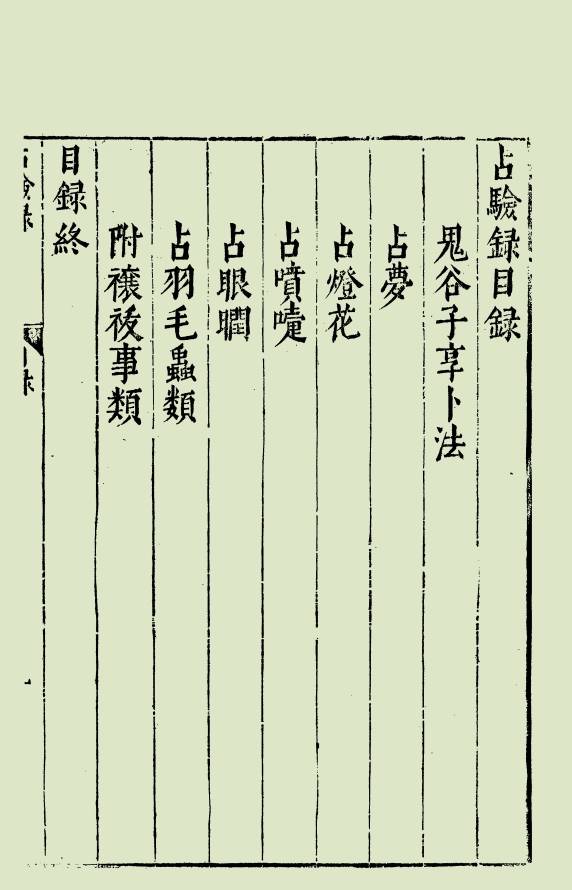 占驗録目録
鬼谷子享卜法
占夢
占燈花
占噴嚏
占眼瞤
占羽毛蟲類
附禳祓事類
目録終